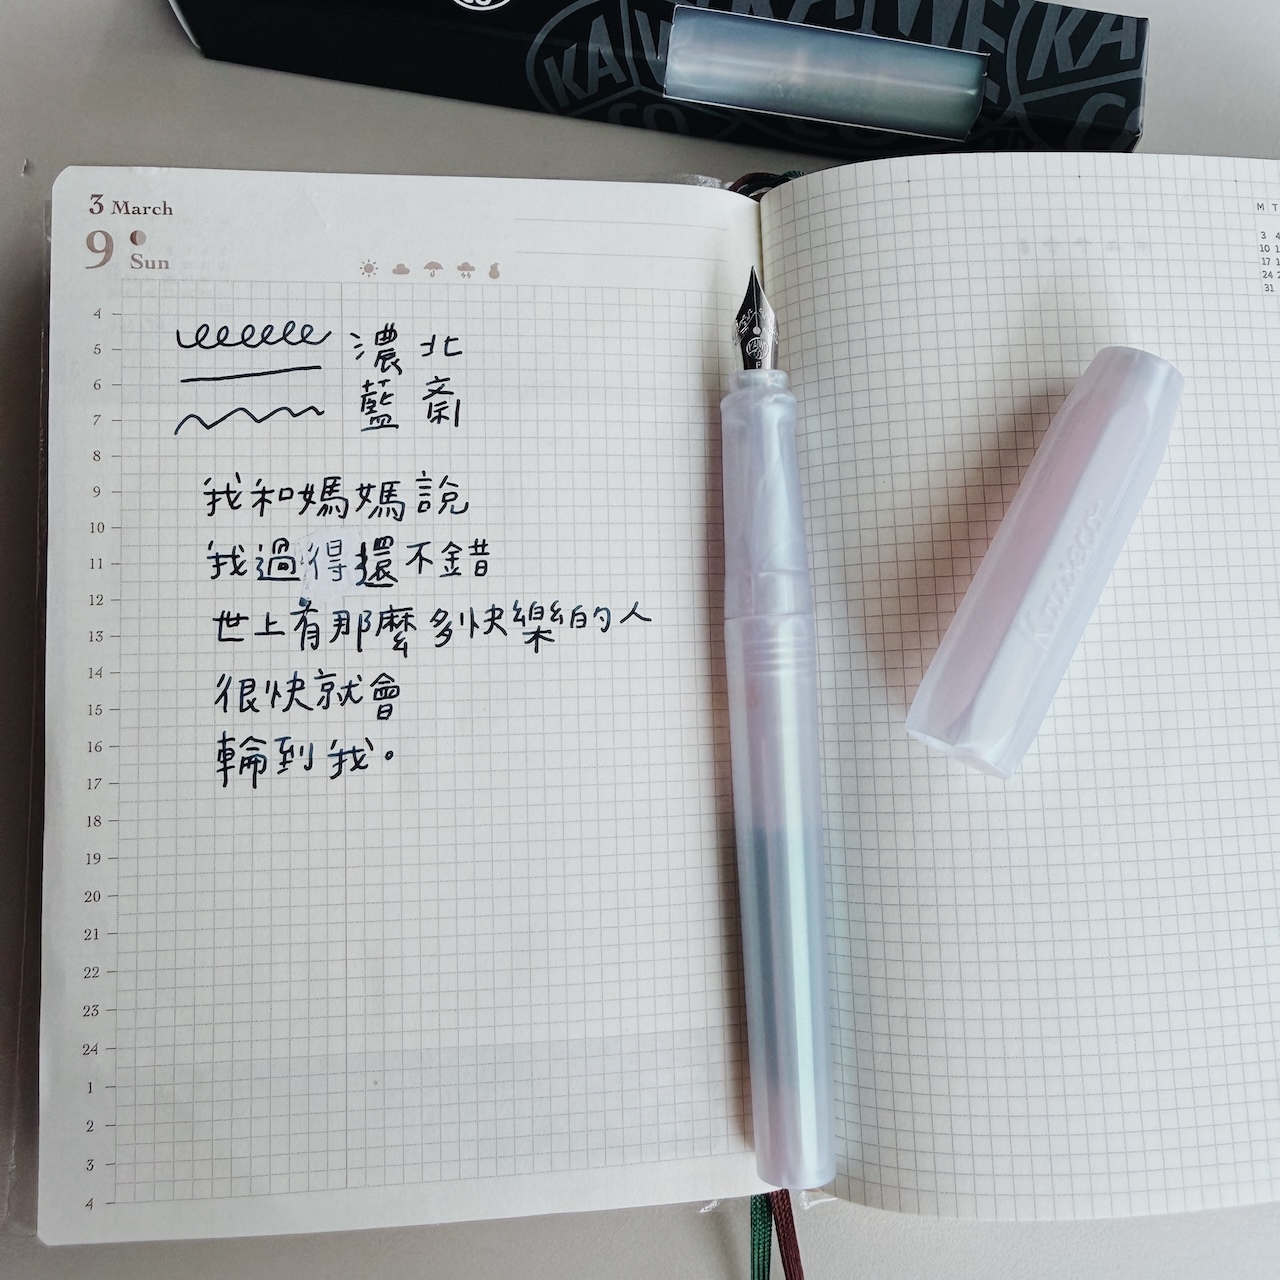 KAW
KAWE
KA
CO
CO
CO
3 March
9 Sun
濃 北
藍 斎
我和媽媽說
我過得還不錯
世上有那麼多快樂的人
很快就會
輪到我。
4
5
6
7
8
9
10
11
12
13
14
15
16
17
18
19
20
21
22
23
24
1
2
3
4
M T
3 4
10
17
24
31